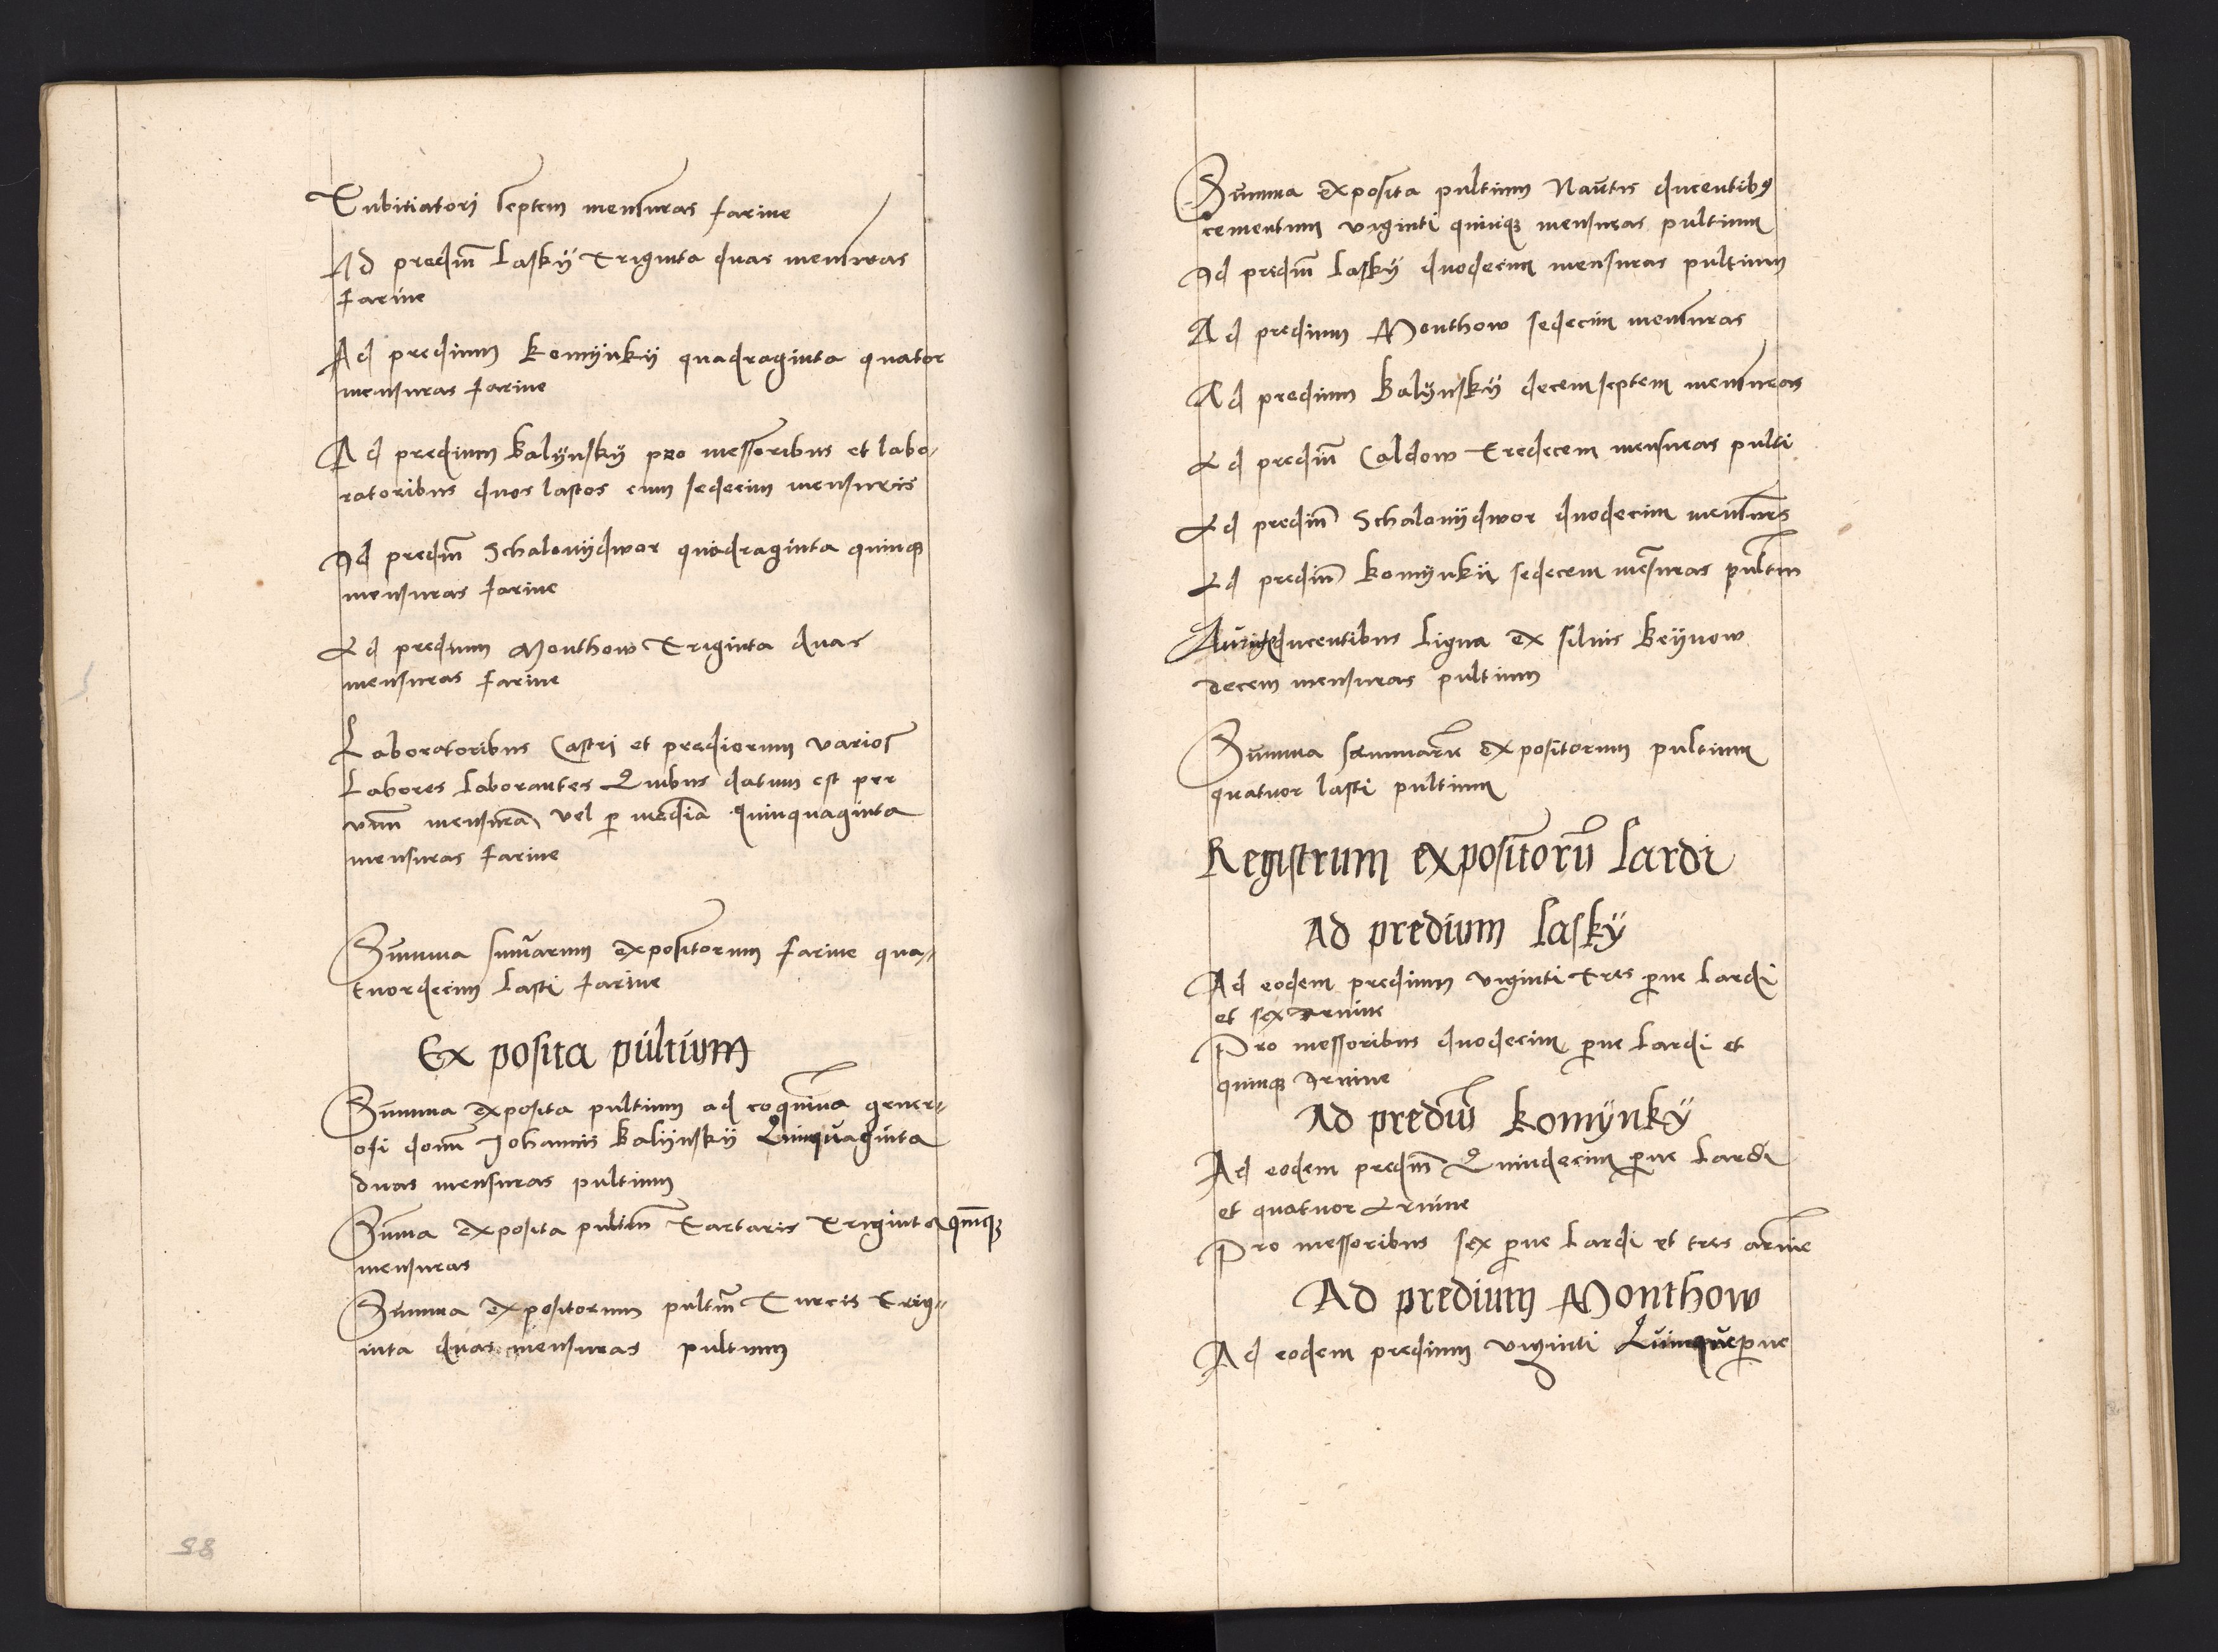 Tubitiatori septem mensuras farine
Ad prediu͞m Lasky Triginta duas mensuras
farine
Ad predium komÿnkÿ quadraginta quator
mensuras farine
Ad predium Balÿnskÿ pro messoribus et labo-
ratoribus duos lastos cum sedecim mensuris
Ad prediu͞m Schalonÿdwor quadraginta quinqꝫ
mensuras farine
Ad predium Monthow Triginta duas
mensuras farine
Laboratoribus Castri et prediorum varios
Labores Laborantes Quibus datum est per
vna͞m mensura͞ vel ꝑ media͞ quinquaginta
mensuras farine
Summa sum͞arum expositorum farine qua-
tuordecim Lasti farine
Exposita pultium
Summa exposita pultium ad coqui͞na gener-
osi domi͞ Johannis Balÿnskÿ Quinquaginta
duas mensuras pultium
Summa exposita pultiu͞m Tartaris Triginta qui͞nqꝫ
mensuras
Summa expositorum pultiu͞m Turcis trig-
inta duas mensuras pultium
88
Summa exposita pultium Nautis ducentibꝯ
cementum viginti quinqꝫ mensuras pultium
Ad prediu͞m Laskÿ duodecim mensuras pultium
Ad predium Monthow sedecim mensuras
Ad predium Balÿnskÿ decemseptem mensuras
Ad prediu͞m Caldow Tredecem mensuras pulti
Ad prediu͞m Schalonÿdwor duodecim mensurs
Ad prediu͞m komÿnkÿ sedecem me͞suras pultm
ducentibus Ligna ex siluis Beÿnow
decem mensuras pultium
Summa summaru͞ expositorum pultium
quatuor lasti pultium
Registrum expositoru͞ Lardi
Ad predium Laskÿ
Ad eodem predium viginti tres ꝑne Lardi
et sex Aruine
Pro messoribus duodecim ꝑne Lardi et
quinqꝫ Aruine
Ad prediu͞ komÿnkÿ
Ad eodem prediu͞m Quindecim ꝑne Lardi
et quatuor Aruine
Pro messoribus sex ꝑne Lardi et tres aruine
Ad predium Monthow
Ad eodem predium viginti Quinque ꝑne